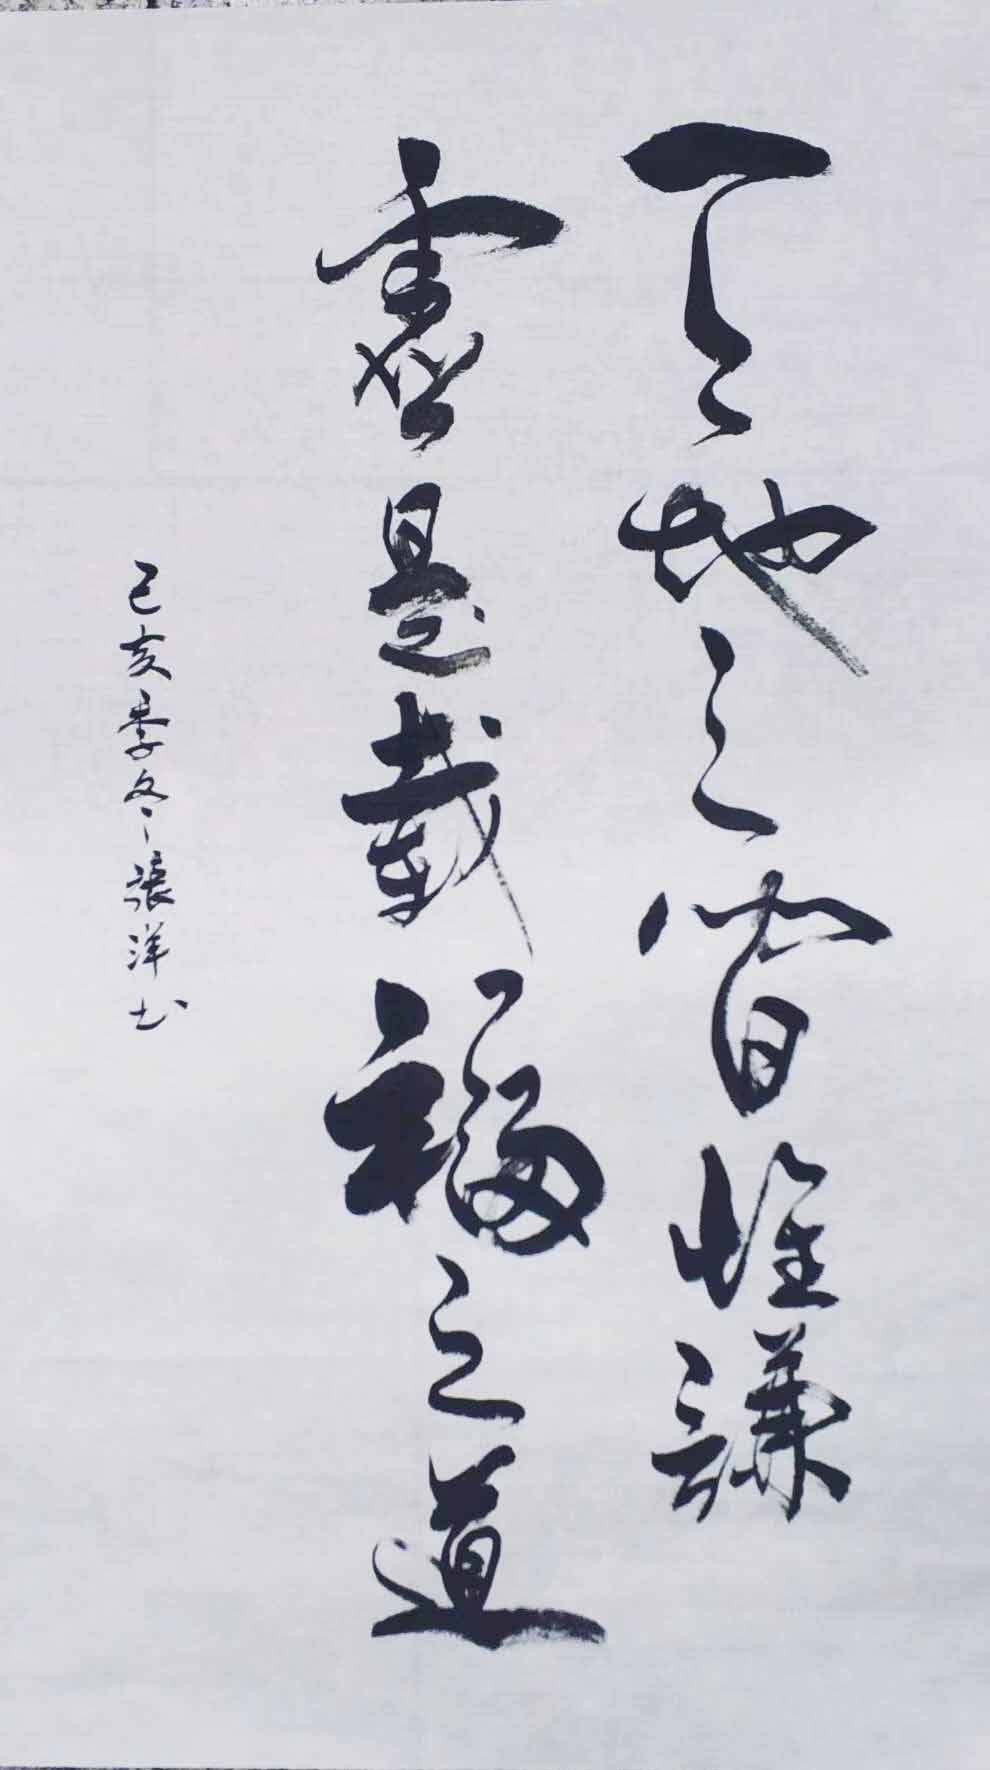 天地之間惟謙
虛是載福之道
己亥季冬張洋书